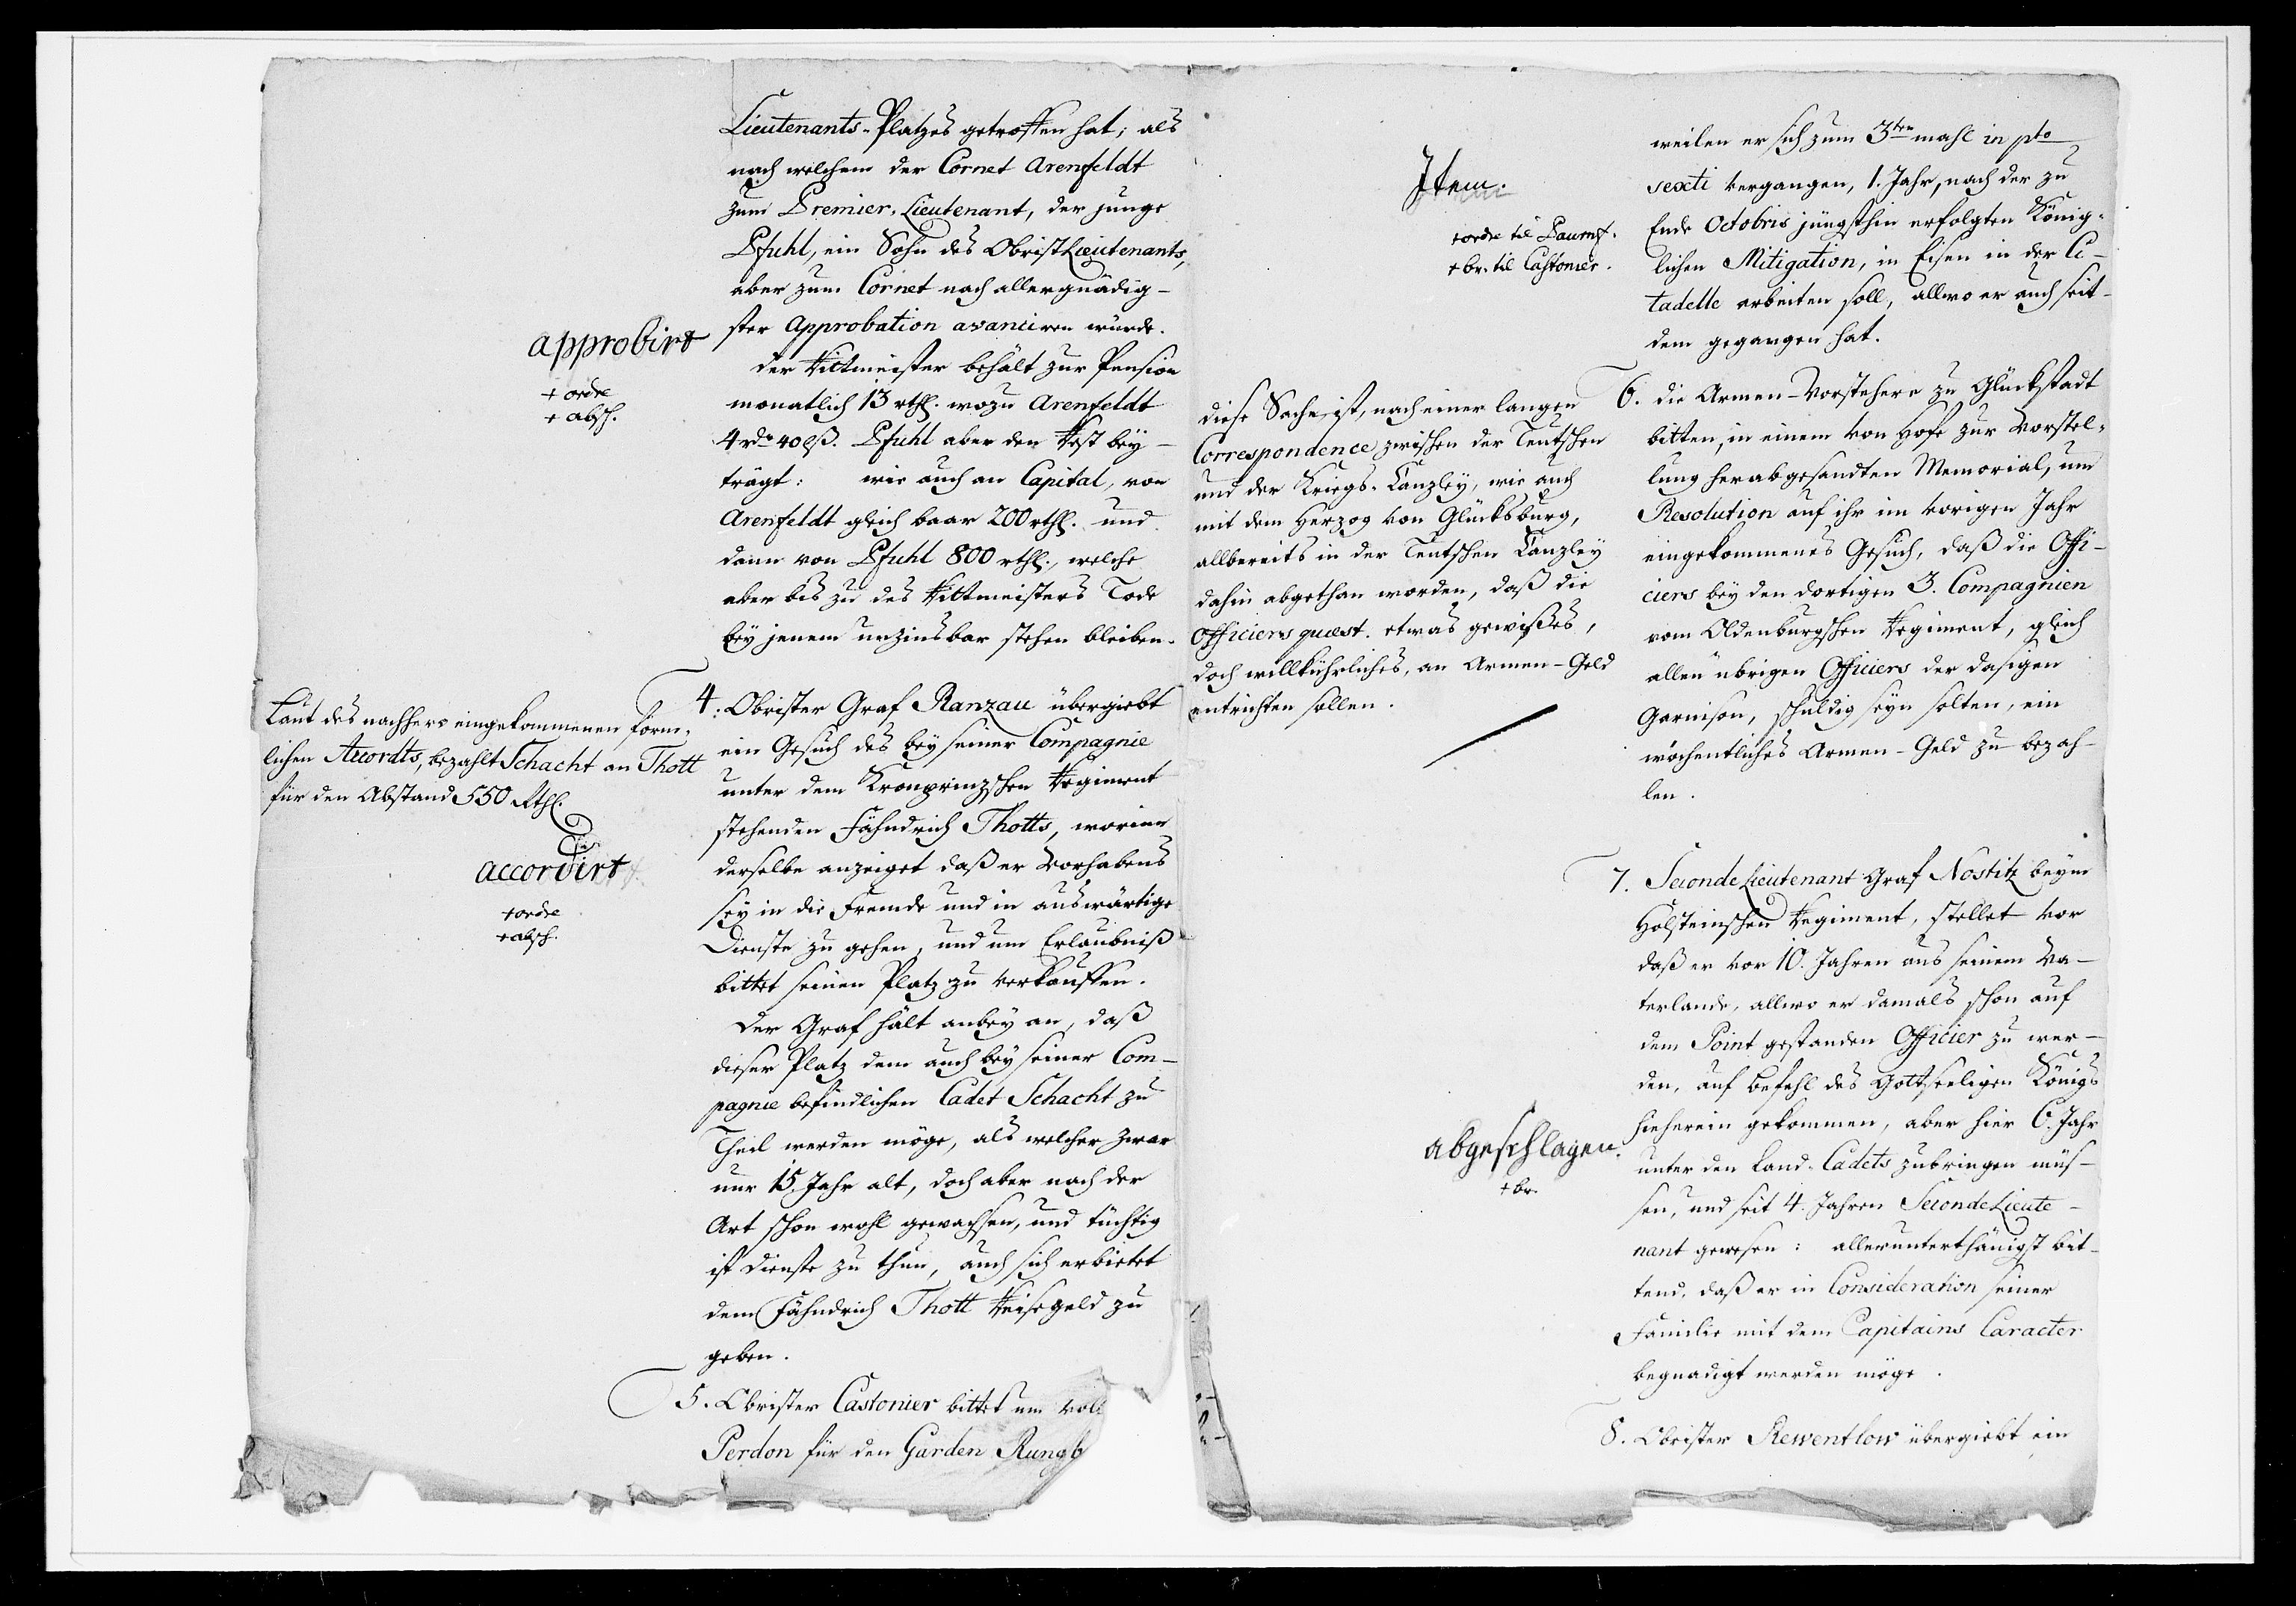 Lieutenants-Platzes getroffen hat; als
nach welchem der Cornet Arenfeldt
zum Premier-Lieutenant, der junge
Pfuhl, ein Sohn des ObristLieutenants,
aber zum Cornet nach allergnädig-
ster Approbation avanciren würde.
approbirt
+ ordre
+ absch.
der Rittmeister behält zur Pension
monatlich 13 rthl. wozu Arenfeldt
4 rd. 40 lß. Pfuhl aber den Rest bey-
trägt: wie auch an Capital, von
Arenfeldt gleich baar 200 rthl. und
dann von Pfuhl 800 rthl., welche
aber bis zu des Rittmeisters Tode
bey jenem unzinsbar stehen bleiben.
Laut des nachhero eingekommenen förm-
lichen Accordts, bezahlt Schacht an Thott
für den Abstand 550 Rthl.
accordirt
+ ordre
+ absch.
4. Obrister Graf Ranzau übergiebt
ein Gesuch des bey seiner Compagnie
unter dem Kronprinzschen Regiment
stehenden Fähndrich Thotts, worinn
derselbe anzeiget daß er Vorhabens
sey in die Fremde und in auswärtige
Dienste zu gehen, und um Erlaubniß
bittet seinen Platz zu verkauffen.
Der Graf hält anbey an, daß
dieser Platz dem auch bey seiner Com-
pagnie befindlichen Cadet Schacht zu
Theil werden möge, als welcher zwar
nur 15. Jahr alt, doch aber nach der
Art schon wohl gewachsen, und tüchtig
ist Dienste zu thun, auch sich erbietet
dem Fähndrich Thott Reisegeld zu
geben.
5. Obrister Castonier bittet um
Perdon für den Garden
Item.
+ ordre til
+ br. til Castonier.
weilen er sich zum 3ten mahl in pto
sexti vergangen, 1. Jahr, nach der zu
Ende Octobris jüngsthin erfolgten König-
lichen Mitigation, in Eisen in der Ci-
tadelle arbeiten soll, allwo er auch seit-
dem gegangen hat.
diese Sache ist, nach einer langen
Correspondence zwischen der Teutschen
und der Kriegs-Canzley, wie auch
mit dem Herzog von Glücksburg,
allbereits in der Teutschen Canzley
dahin abgethan worden, daß die
Officiers quæst. etwas gewißes,
doch willkührliches, an Armen-Geld
entrichten sollen.
6. die Armen-Vorstehere zu Glückstadt
bitten, in einem von Hofe zur Vorstel-
lung herabgesandten Memorial, um
Resolution auf ihr im vorigen Jahr
eingekommenes Gesuch, daß die Offi-
ciers bey den dortigen 3. Compagnien
vom Oldenburgschen Regiment, gleich
allen übrigen Officiers der dasigen
Garnison, schuldig seyn solten, ein
wöchentliches Armen-Geld zu bezah-
len.
abgeschlagen.
+ br.
7. SecondeLieutenant Graf Nostitz beym
Holsteinschen Regiment, stellet vor
daß er vor 10. Jahren aus seinem Va-
terlande, allwo er damals schon auf
dem Point gestanden Officier zu wer-
den, auf Befehl des Gottseeligen Königs
hieherein gekommen, aber hier 6. Jahr
unter den Land-Cadets zubringen müs-
sen, und seit 4. Jahren SecondeLieute-
nant gewesen: allerunterthänigst bit-
tend, daß er in Consideration seiner
Familie mit dem Capitains Caracter
begnadigt werden möge.
8. Obrister Rewentlow übergiebt ein